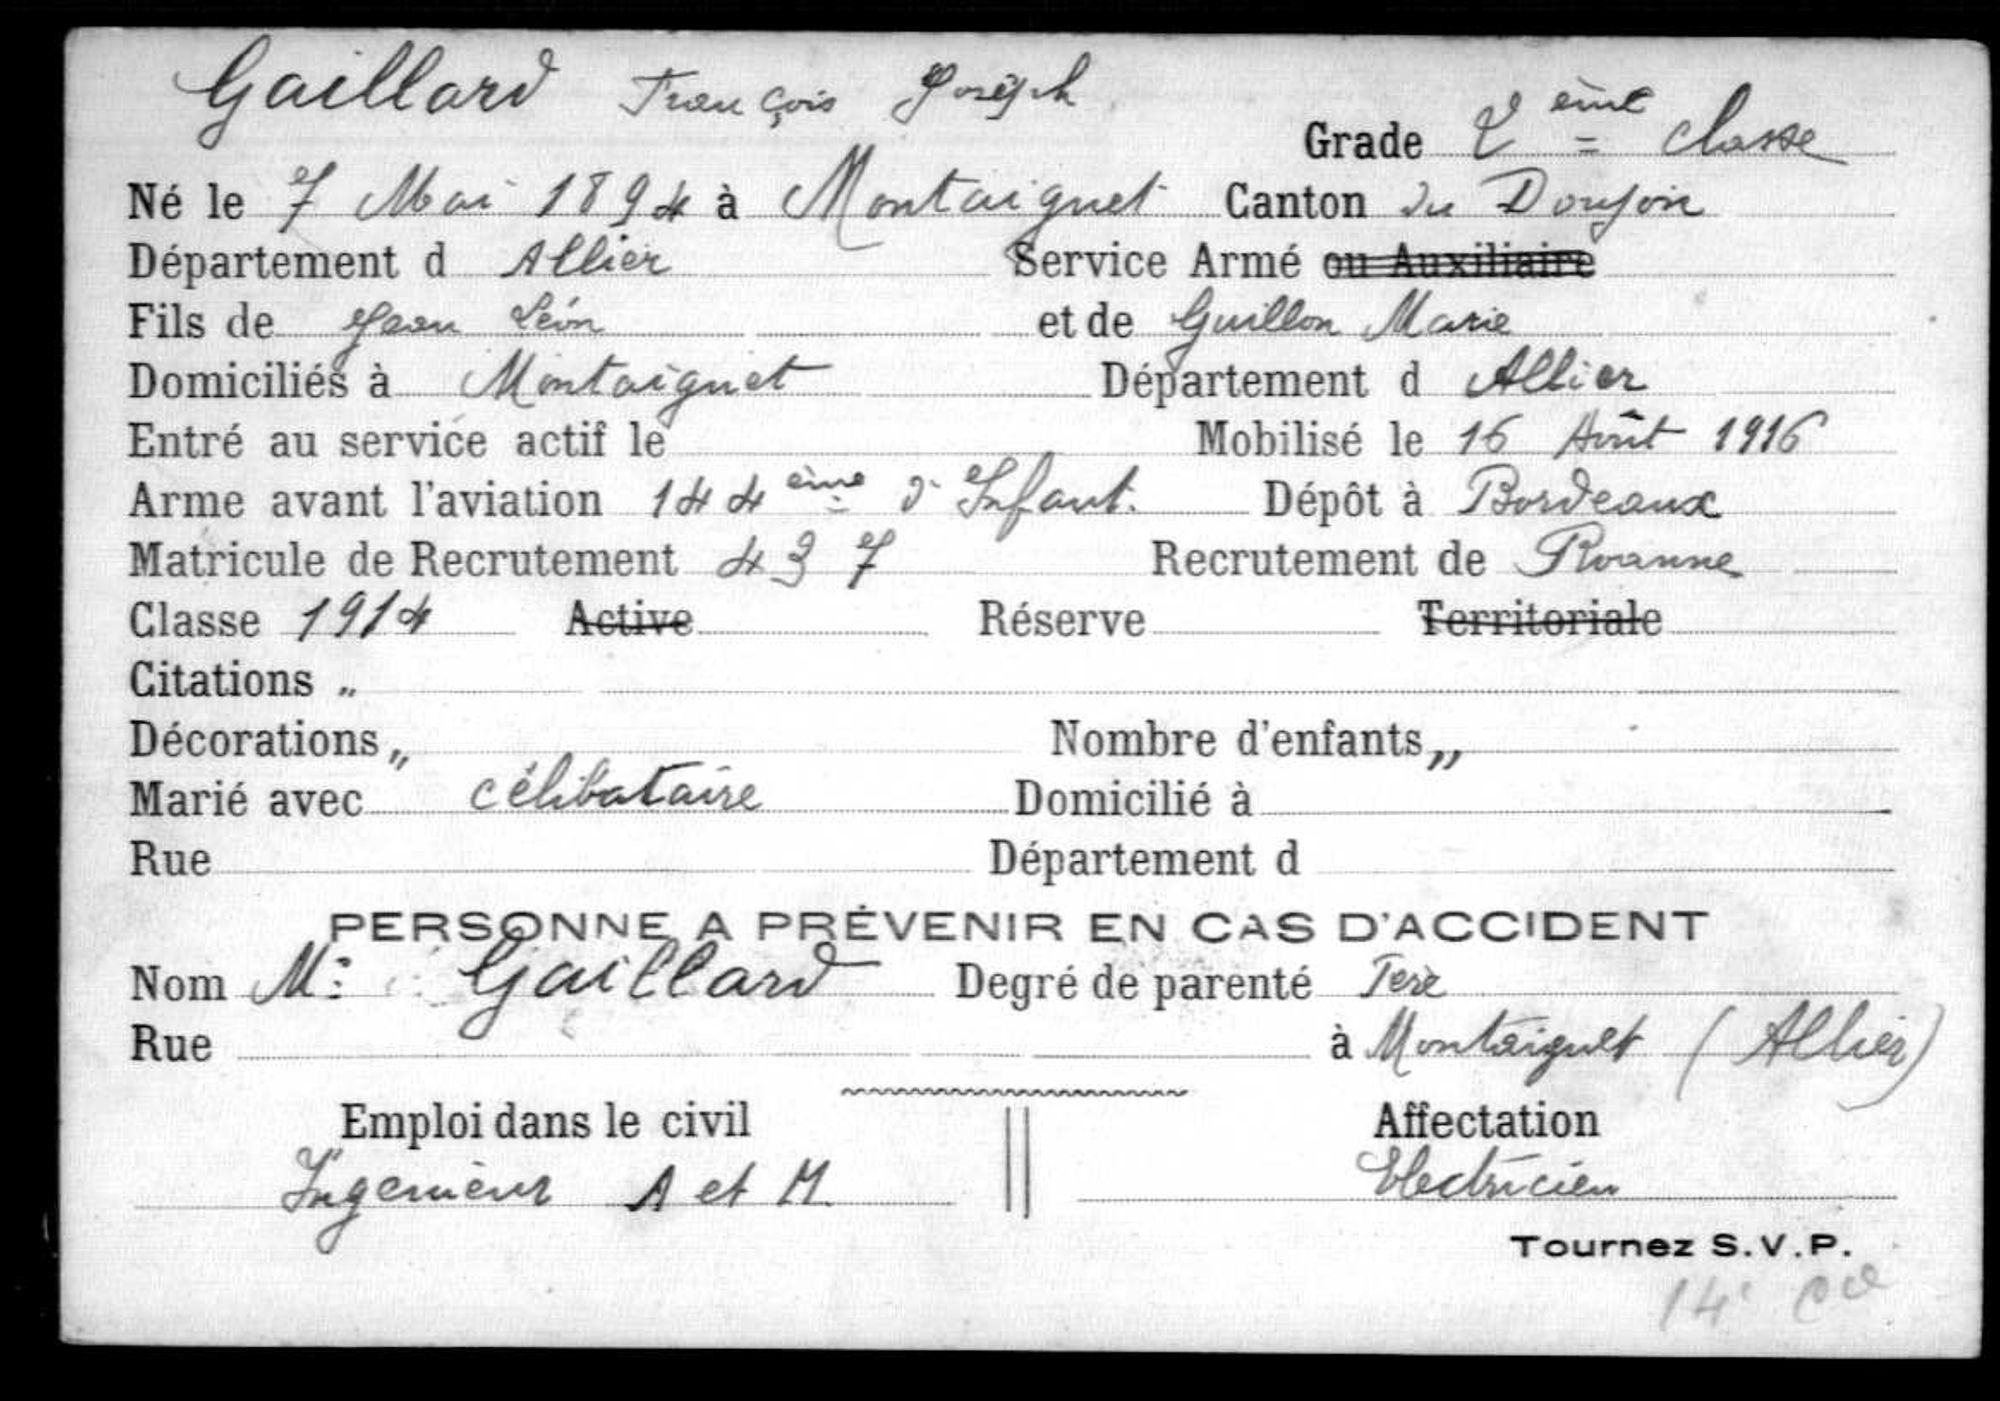 Gaillard François Joseph
Grade 2 ème classe
Né le 7 Mai 1894 à Montaiguet Canton du Donjon
Département d Allier Service Armé ou Auxiliaire
Fils de Jean Léon et de Guillon Marie
Domiciliés à Montaiguet Département d Allier
Entré au service actif le Mobilisé le 16 Août 1916
Arme avant l'aviation 144 ème d'Infant. Dépôt à Bordeaux
Matricule de Recrutement 437 Recrutement de Roanne
Classe 1914 Active Réserve Territoriale
Citations „
Décorations „ Nombre d'enfants „
Marié avec célibataire Domicilié à
Rue Département d
PERSONNE A PRÉVENIR EN CAS D'ACCIDENT
Nom Mr Gaillard Degré de parenté Père
Rue à Montaiguet (Allier)
Emploi dans le civil Affectation
Ingénieur A et M. Electricien
Tournez S.V.P.
14e Cie